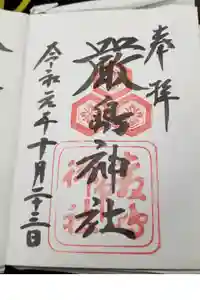 奉拝
嚴島神社
令和元年十月二十三日